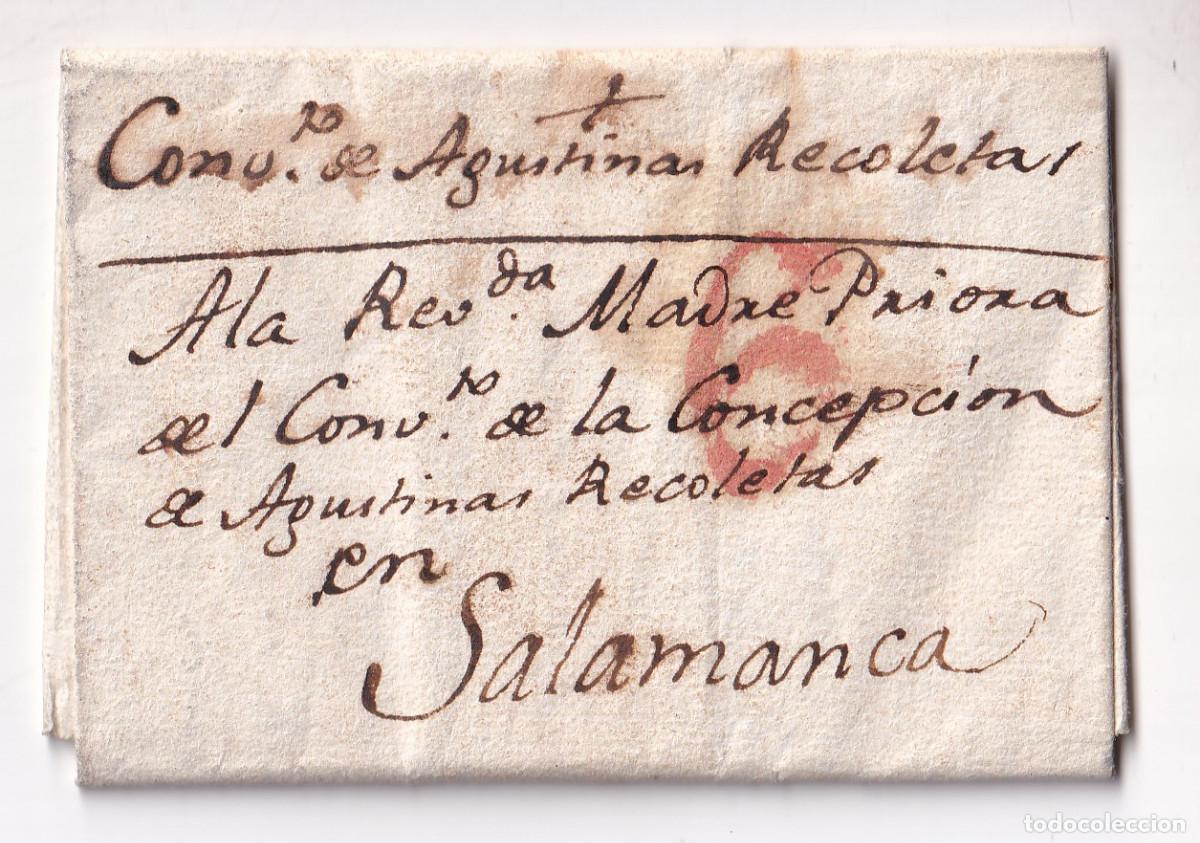 +
Conv.to de Agustinas Recoletas
A la Rev.da Madre Priora
del Conv.to de la Concepcion
de Agustinas Recoletas
en
Salamanca
6
todocoleccion